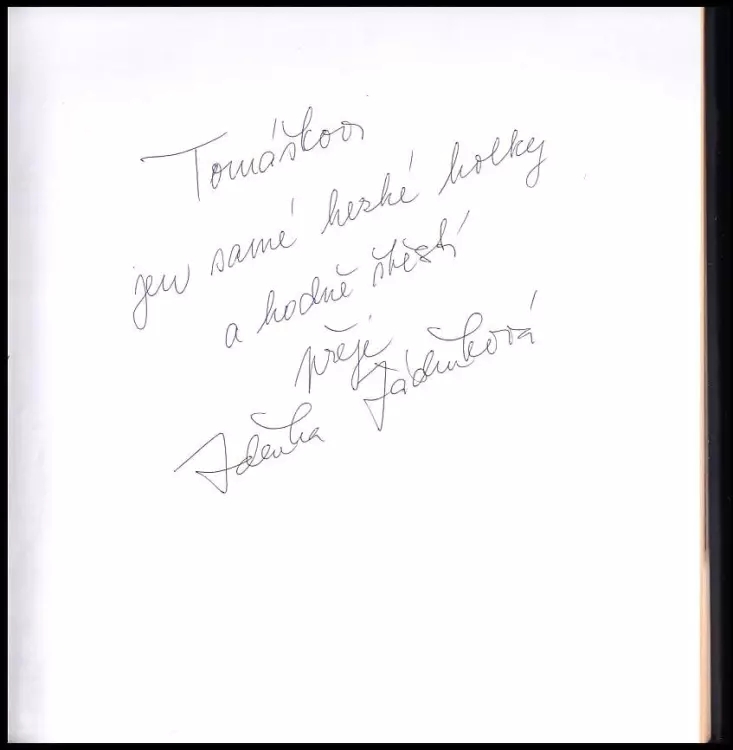 Tomáškovi
jen samé hezké holky
a hodně štěstí
přeje
Zdeňka